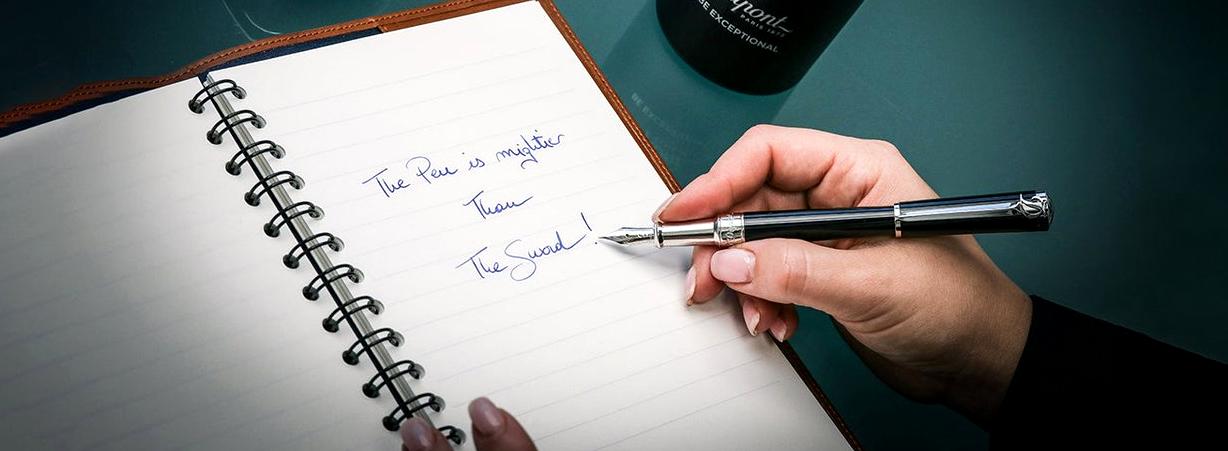 pont
PARIS 1872
BE EXCEPTIONAL
The Pen is mightier
Than
The Sword!